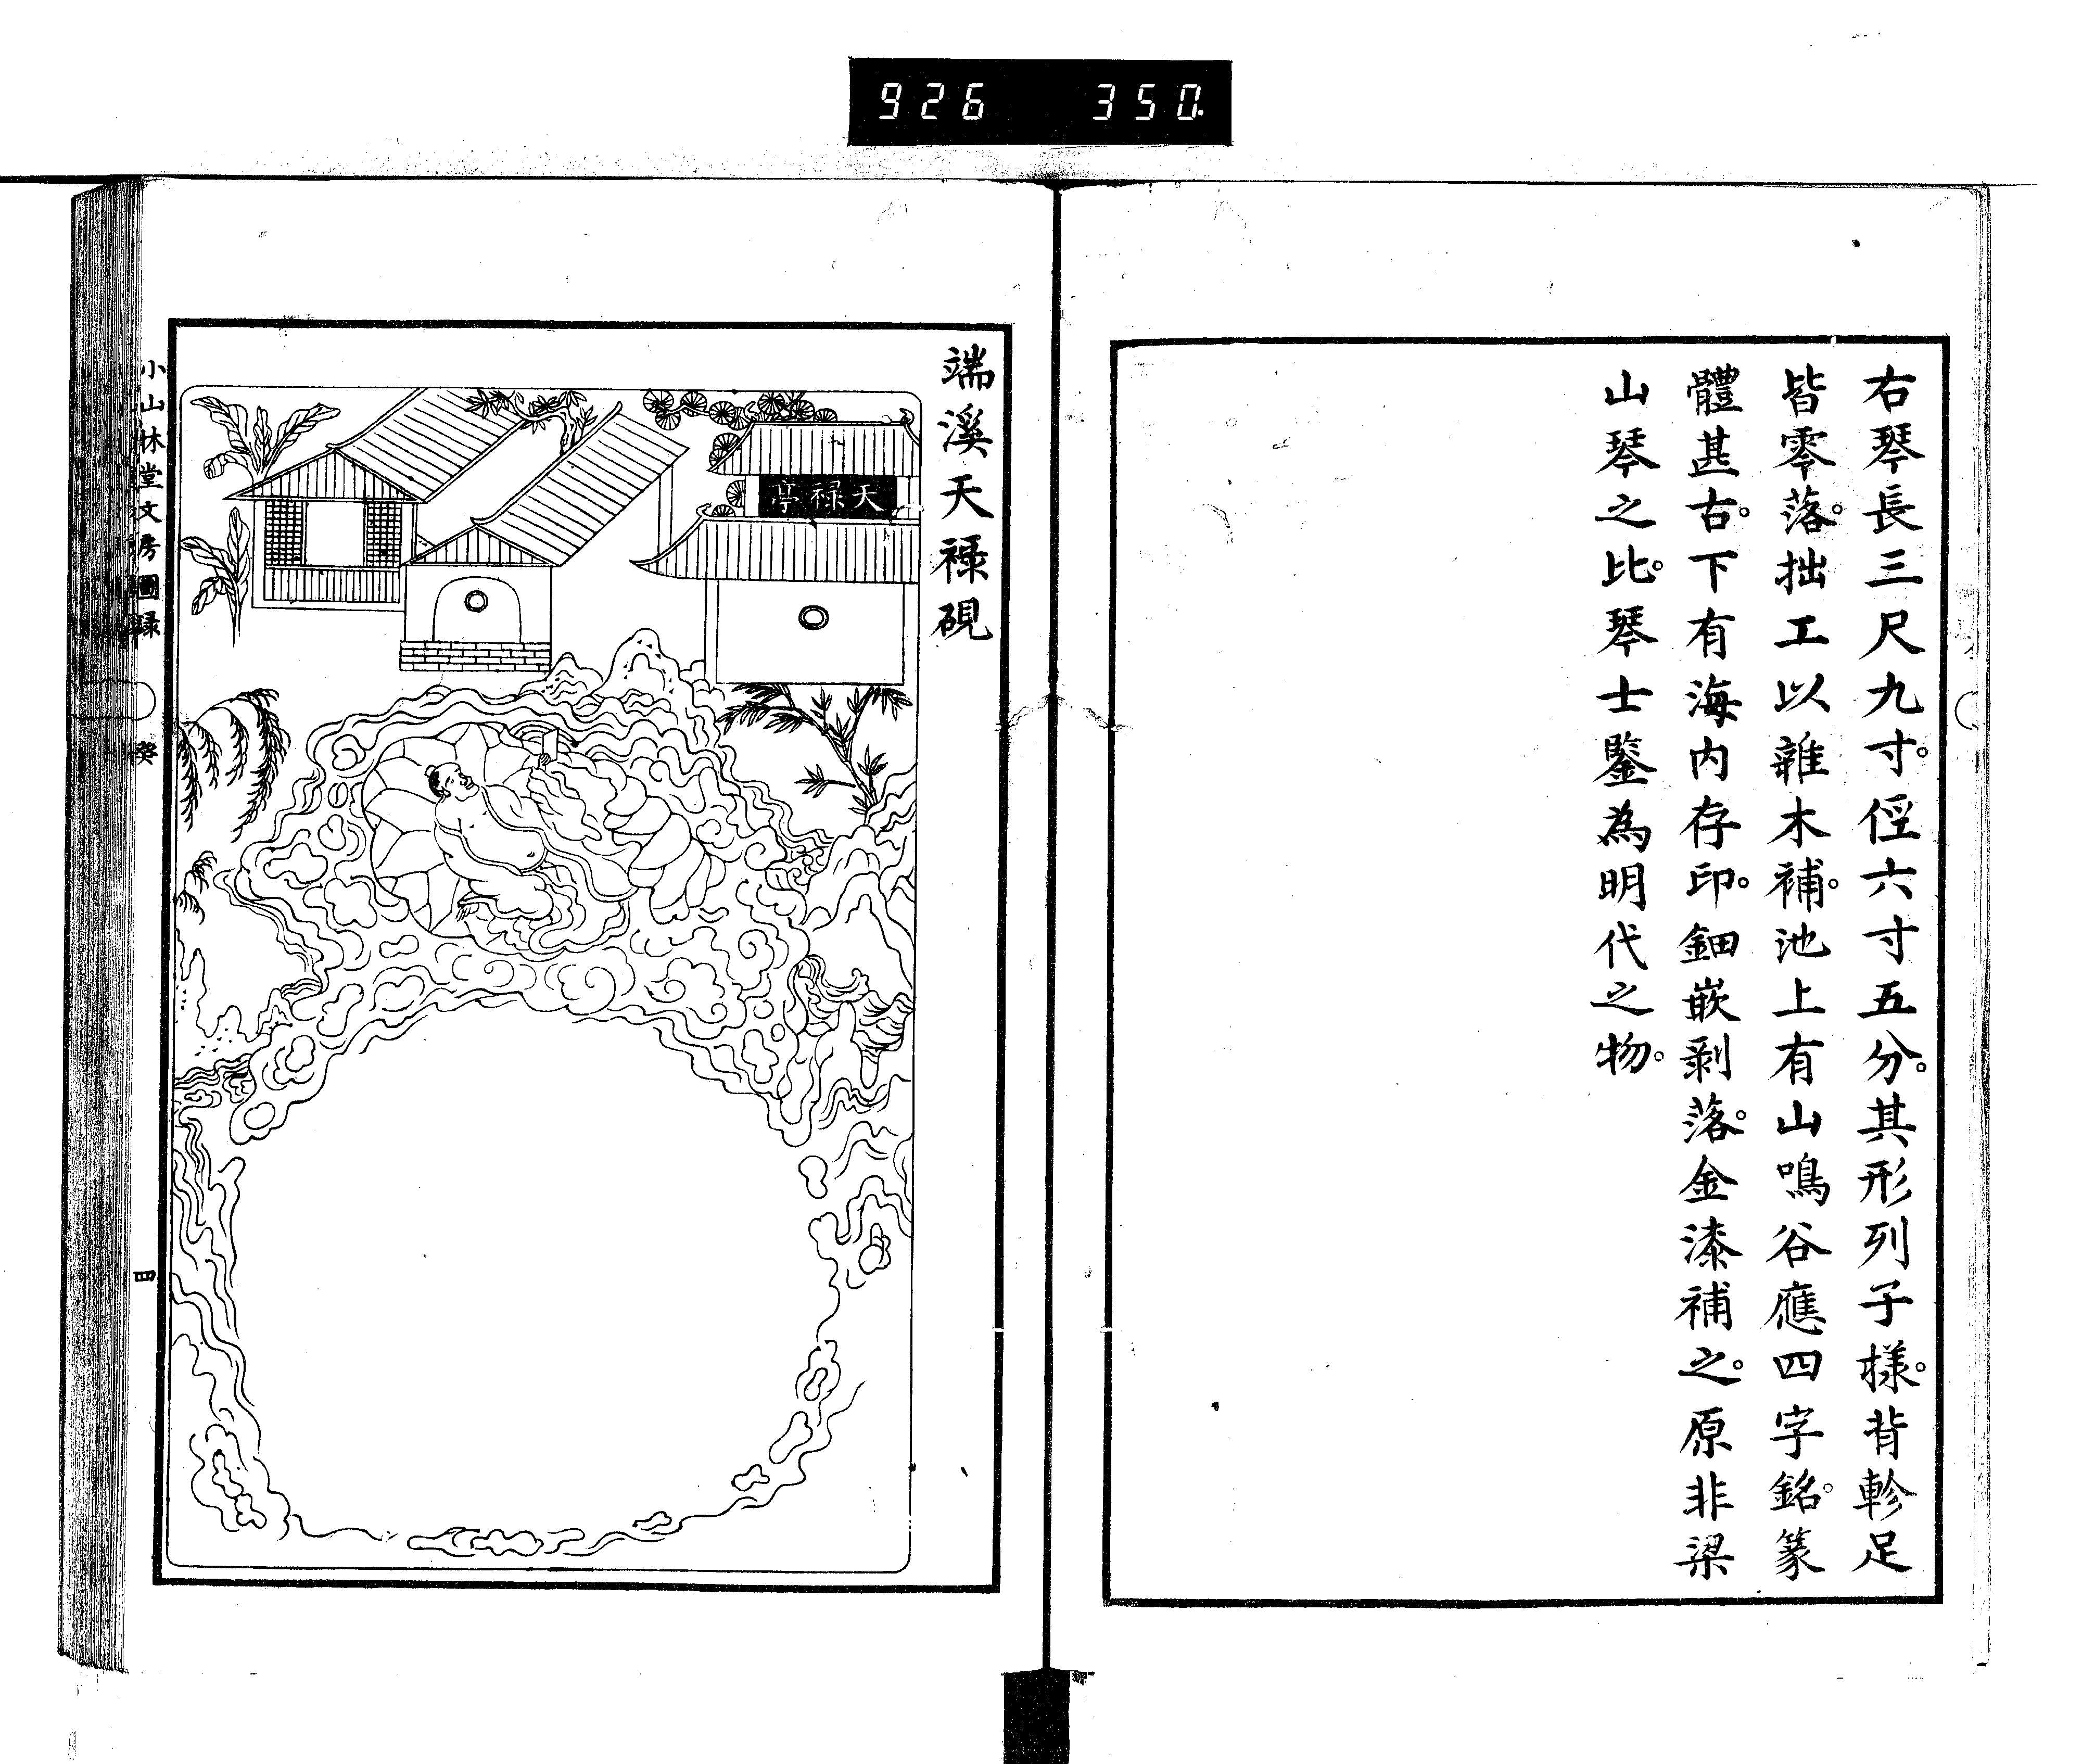 926 350
右琴長三尺九寸。徑六寸五分。其形列子樣。背軫足
皆零落。拙工以雜木補。池上有山鳴谷應四字銘。篆
體甚古。下有海内存印。鈿嵌剥落。金漆補之。原非梁
山琴之比。琴士鑒為明代之物。
端溪天祿硯
天禄亭
小山林堂文房圖録
癸
四